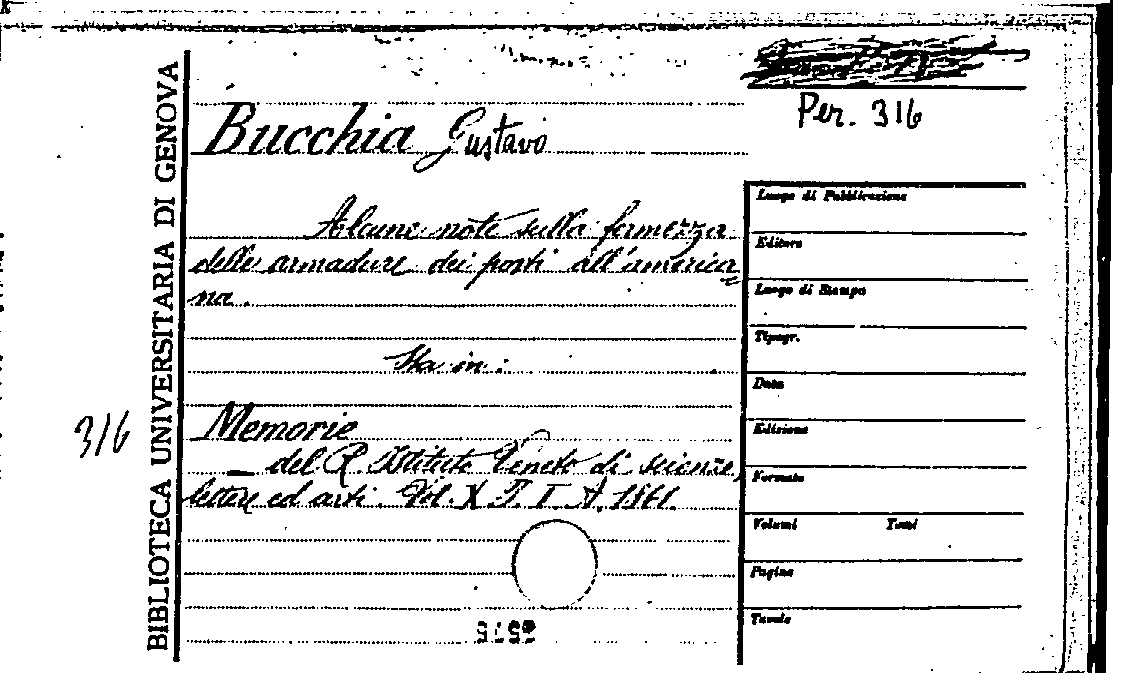 Per. 316
Bucchia Gustavo
Alcune note sulla fermezza
delle armadure dei ponti all'america
na.
Sta in:
Memorie
del R. Istituto Veneto di scienze,
lettere ed arti. Vol. X. P. I. A. 1861.
316
BIBLIOTECA UNIVERSITARIA DI GENOVA
Luogo di Pubblicazione
Editore
Luogo di Stampa
Tipogr.
Data
Edizione
Formato
Volumi Tomi
Pagine
Tavole